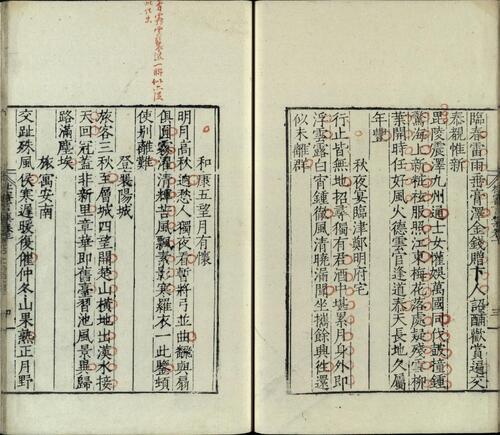 臨春雷雨垂膏澤金錢贈下人詔酺歡賞遍交
泰覩惟新
毘陵震澤九州通士女懽娛萬國同伐鼓撞鐘
驚海上新粧袨服照江東梅花落處疑殘雪柳
葉開時任好風火德雲官逢道泰天長地久屬
年豐
秋夜宴臨津鄭明府宅
行止皆無地招尋獨有君酒中堪累月身外即
浮雲露白宵鐘徹風清曉漏聞坐攜餘興往還
似未離群
和康五望月有懷
明月高秋迥愁人獨夜看暫將弓並曲飜與扇
俱團霧濯清輝苦風飄素影寒羅衣一此鑒頓
使別離難
登襄陽城
旅客三秋至層城四望開楚山橫地出漢水接
天回冠蓋非新里章華即舊臺習池風景異歸
路滿塵埃
旅寓安南
交趾殊風候寒遲暖復催仲冬山果熟正月野